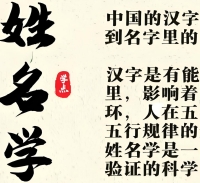 姓名学
学点
中国的汉字
到名字里的
汉字是有能
里，影响着
环，人在五
五行规律的
姓名学是一
验证的科学